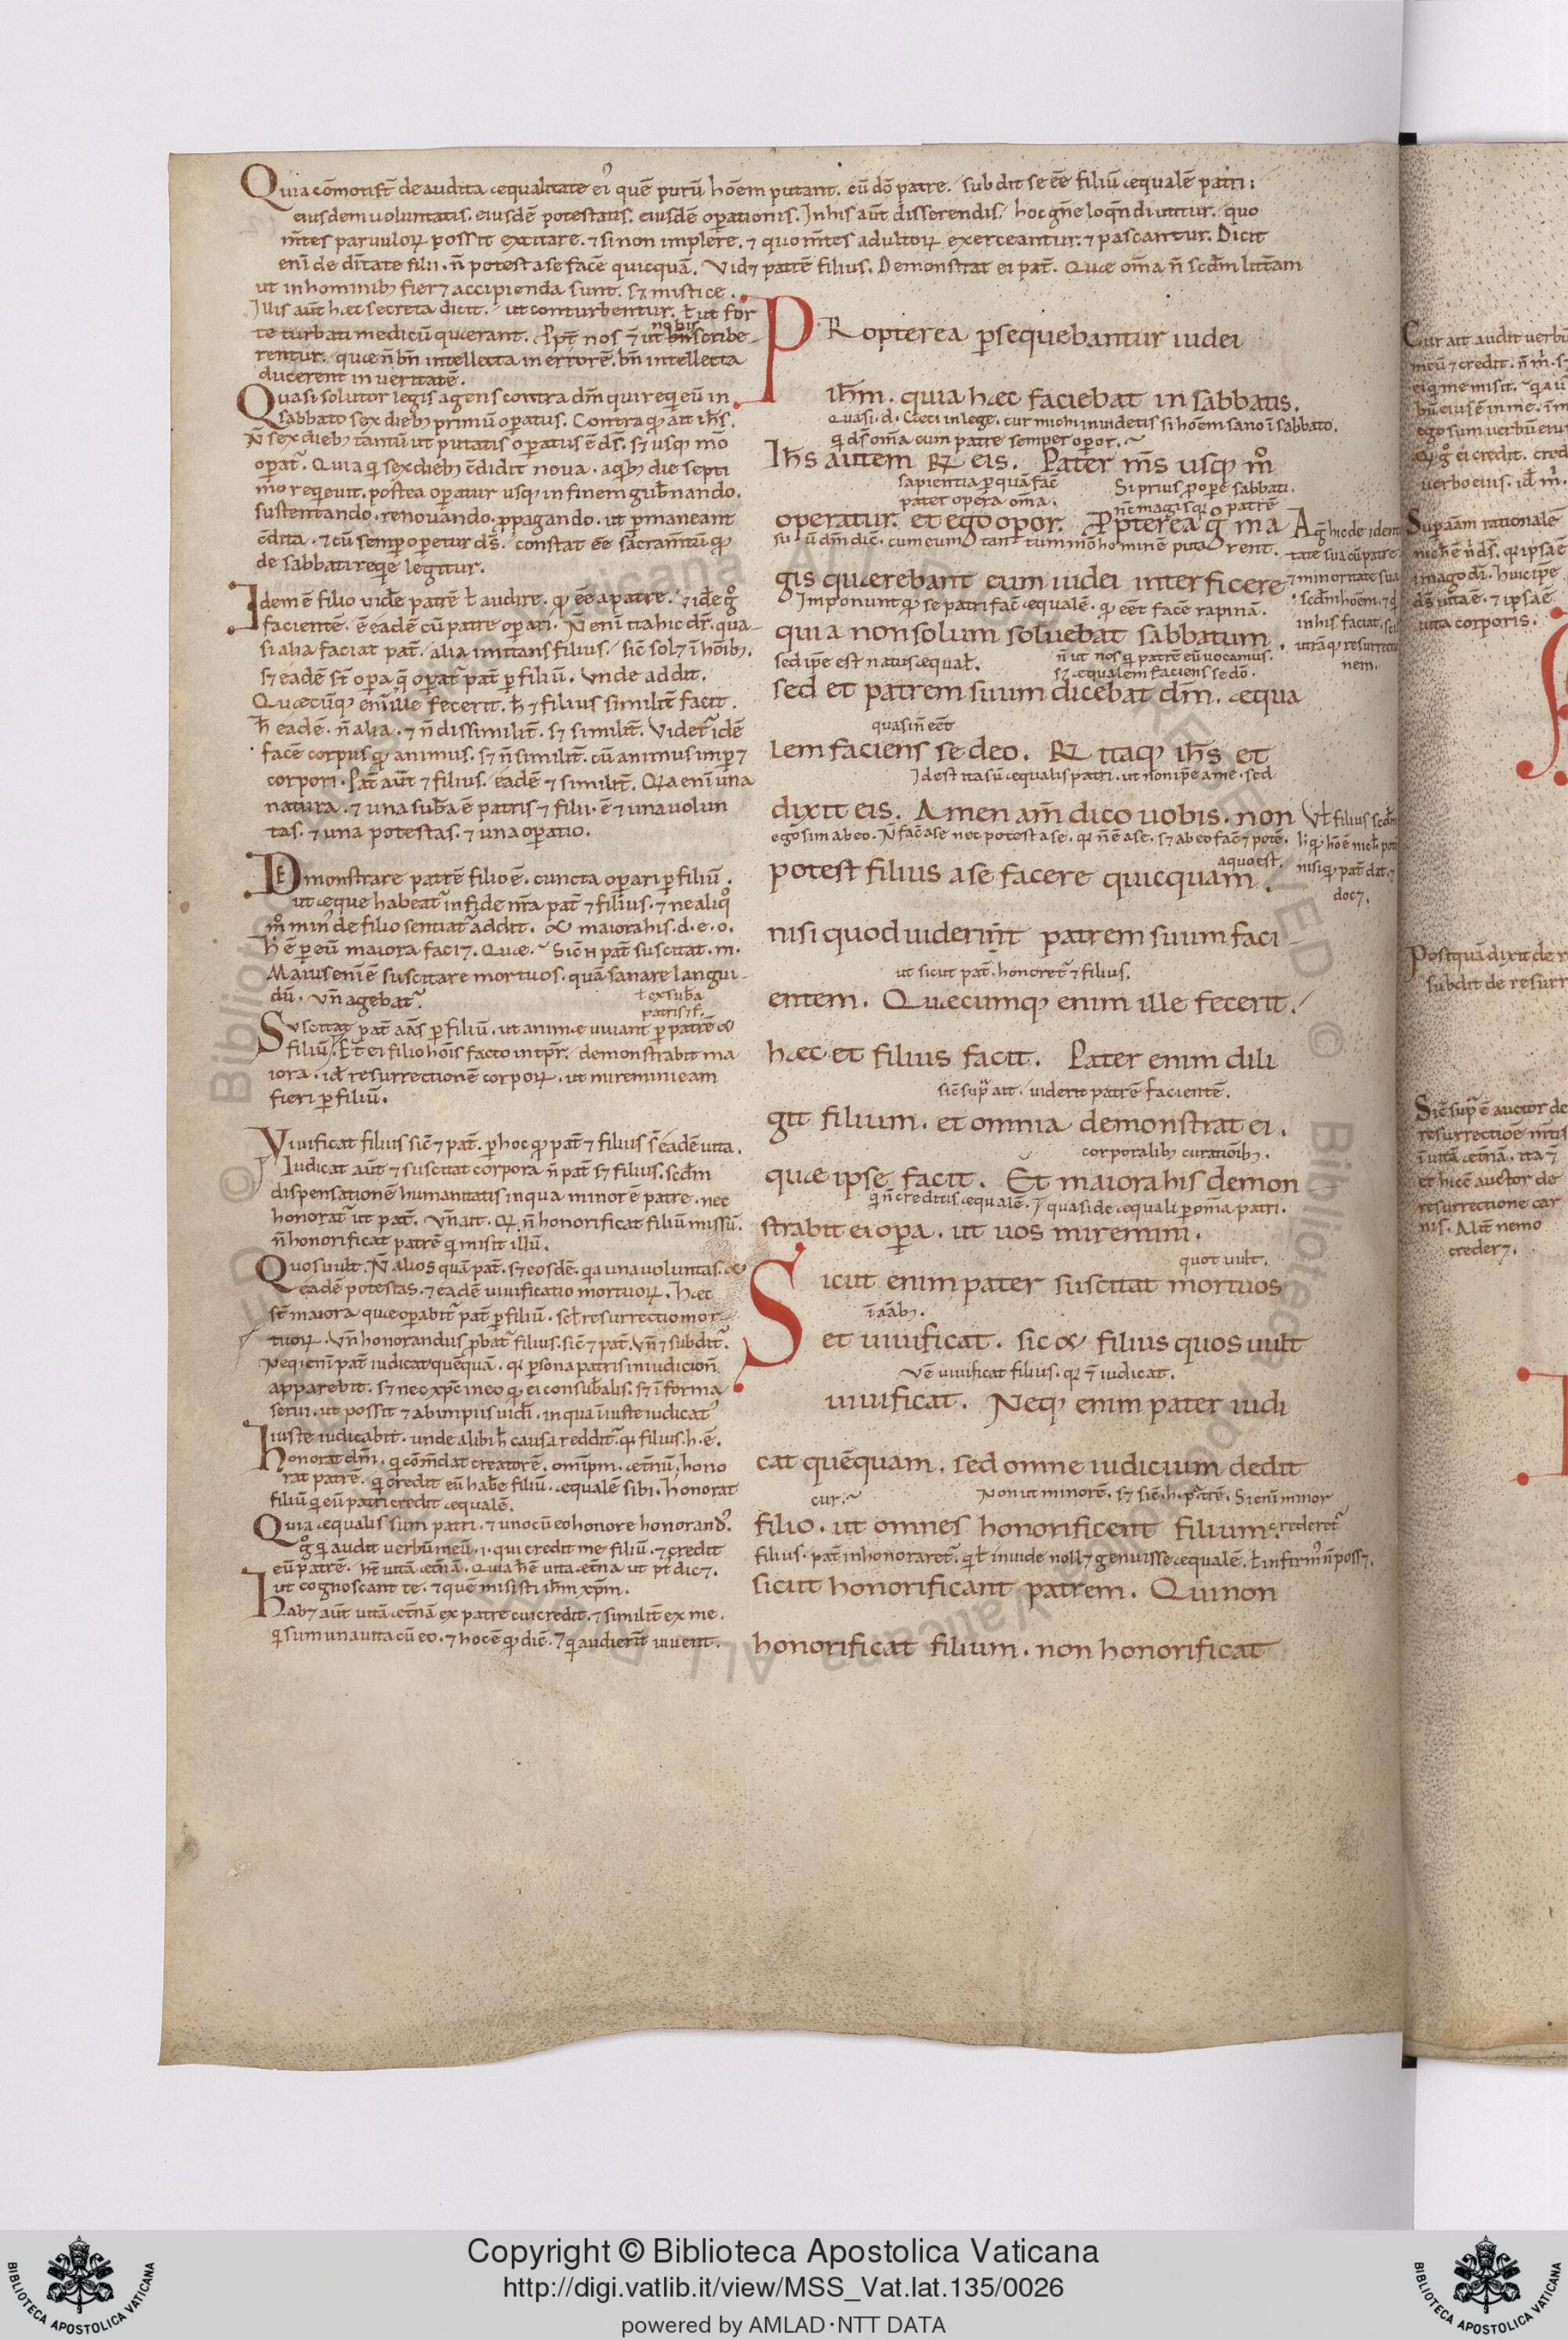 Quia cōmotisť de audita æqualitate ei' quē purū hōem putant. cū dō patre. subdit se eē filiū æqualē patri:
eiusdem uoluntatis. eiusdē potestatis. eiusdē oꝑationis. In his aūt disserendis. hoc gñe loqūdi utitur. quo
m̄tes paruuloꝝ possit excitare. ⁊ si non implere. ⁊ quo m̄tes adultoꝝ exerceantur. ⁊ pascantur. Dicit
eni de dīitate filii. n̄ potest a se facē quicquā. Vidꝫ patrē filius. Demonstrat ei pať. Quæ om̄a n̄ scdm litťam
ut in hominibꝫ fierꝫ accipienda sunt. sꝫ mistice.
Illis aūt hæc secreta dicit. ut conturbentur. ł ut for
te turbati medicū quærant.
rentur. quæ n̄ bn̄ intellecta in errorē. bn̄ intellecta
ducerent in ueritatē.
Quasi solutor legis agens contra dm̄ qui reqeuit in
sabbato sex diebꝫ primū oꝑatus. Contra qꝫ ait ih̄s.
N̄ sex diebꝫ tantū ut putatis oꝑatus ē ds̄. sꝫ usqꝫ mō
oꝑať. Quia q sex diebꝫ c̄didit noua. a qbꝫ die septi
mo reqeuit. postea oꝑatur usqꝫ in finem gub̄nando.
sustentando. renouando. ꝓpagando. ut ꝑmaneant
c̄dita. ⁊ cū semꝑ oꝑetur ds̄. constat eē sacramtū qꝫ
de sabbati reqe legitur.
Idem ē filio uidē patrē ł audire. qꝫ eē a patre.
facientē. ē eadē cū patre oꝑari. N̄ eni ita hic dr̄. qua
si alia faciat pať. alia imitans filius. sic̄ solꝫ ī hōibꝫ.
sꝫ eadē sť oꝑa q oꝑať pať ꝑ filiū. Vnde addit.
Quæcūqꝫ eni ille fecerit. h̄ ⁊ filius similiť facit.
h̄ eadē. n̄ alia. ⁊ n̄ dissimiliť. sꝫ similiť. Videť idē
facē corpus qꝫ animus. sꝫ n̄ similiť. cū animus imꝑꝫ
corpori. Pať aūt ⁊ filius. eadē ⁊ similiť. Qia eni una
natura. ⁊ una sub̄a ē patris ⁊ filii. ē ⁊ una uolun
tas. ⁊ una potestas. ⁊ una oꝑatio.
Demonstrare patrē filio ē. cuncta oꝑari ꝑ filiū.
ut æque habeať in fide nr̄a pať ⁊ filius. ⁊ ne aliqͦ
mͦ min' de filio sentiať addit. & maiora his. d. e. o.
h̄ ē ꝑ eū maiora faciꝫ. Quæ. Sic̄ n pať suscitat. m.
Maius eni ē suscitare mortuos. quā sanare langui
dū. Vn̄ agebať.
ł ex sub̄a
patris ⁊ f.
Suscitat pať aās ꝑ filiū. ut animæ uiuant ꝑ patrē &
filiū. Et ei filio hōis facto in tp̄r. demonstrabit ma
iora. id resurrectionē corporꝝ. ut miremini eam
fieri ꝑ filiū.
Viuificat filius sic̄ ⁊ pať. ꝑ hoc qꝫ pať ⁊ filius s̄ eadē uita.
Iudicat aūt ⁊ suscitat corpora n̄ pať sꝫ filius. scdm
dispensationē humanitatis in qua minor ē patre. nec
honorať ut pať. Vn̄ ait. Qi n̄ honorificat filiū missū.
n̄ honorificat patrē q misit illū.
Quos uult. N̄ alios quā pať. sꝫ eosdē. qa una uoluntas. &
eadē potestas. ⁊ eadē uiuificatio mortuoꝝ. Hæc
sť maiora quæ oꝑabiť pať ꝑ filiū. scł resurrectio mor
tuoꝝ. Vn̄ honorandus ꝓbať filius. sic̄ ⁊ pať. Vn̄ ⁊ subdiť.
Neqꝫ eni pať iudicat quēquā. qi ꝑsona patris in iudicio n̄
apparebit. sꝫ nec xp̄c in eo qꝫ ei consub̄alis. sꝫ ī forma
serui. ut possit ⁊ ab impiis uidī. in qua iniuste iudicat'
iuste iudicabit. unde alibi h̄ causa reddiť. qi filius. h. ē.
Honorat dm̄. q cōm̄dat creatorē. omīpm. ætnū. hono
rat patrē. q credit eū habē filiū. æqualē sibi. Honorat
filiū q eū patri credit æqualē.
Quia æqualis sum patri. ⁊ uno cū eo honore honorand'.
gͦ q audit uerbū meū. i. qui credit me filiū. ⁊ credit
eū patrē. hť uitā ætnā. Quia h̄ ē uita ætna ut pť dicꝫ.
ut cognoscant te. ⁊ quē misisti ihm̄ xp̄m.
Habꝫ aūt uitā ætnā ex patre cui credit. ⁊ similiť ex me.
q sum una uita cū eo. ⁊ hoc ē qꝫ dic̄. ⁊ q audieriť uiuent.
PRopterea ꝑsequebantur iudei
ihm̄. quia hæc faciebat in sabbatis.
Quasi. d. Cæci in lege. cur michi inuidetis si hōem sano ī sabbato.
q ds̄ om̄a cum patre semper oꝑor.
Ih̄s autem ℞ eis. Pater m̄s usqꝫ mͦ
sapientia ꝑ quā fac̄
pater opera om̄a.
Si prius ꝓ oꝑe sabbati.
nc̄ magis qꝫ patrē
operatur. et ego oꝑor. Ꝓpterea g̊ ma
suū dm̄ dic̄. cum eum tantummͦ hominē putarent.
gis quærebant eum iudei interficere
Imponunt qꝫ se patri fac̄ æqualē. qꝫ eēt facē rapinā.
quia non solum soluebat sabbatum.
sed ip̄e est natus æqual.
n̄ ut nos q patrē eū uocamus.
sꝫ æqualem faciens se dō.
sed et patrem suum dicebat dm̄. æqua
quasi n̄ eēt
lem faciens se deo. ℞ itaqꝫ ih̄s et
Id est ita sū æqualis patri. ut non ip̄e a me. sed
dixit eis. Amen am̄ dico uobis. non
ego sim ab eo. N̄ fac̄ a se nec potest a se. qi n̄ ē a se. sꝫ ab eo fac̄ ⁊ potē.
a quo est.
potest filius a se facere quicquam.
nisi quod uideriňt patrem suum faci
ut sicut pať. honoreť ⁊ filius.
entem. Quæcumqꝫ enim ille fecerit.
hæc et filius facit. Pater enim dili
sic̄ supͣ ait. uiderit patrē facientē.
git filium. et omnia demonstrat ei.
corporalibꝫ curatiōibꝫ.
quæ ipse facit. Et maiora his demon
q n̄ creditis æqualē. ⁊ quasi de æquali ꝑ om̄a patri.
strabit ei oꝑa. ut uos miremini.
quot uult.
Sicut enim pater suscitat mortuos
ī aābꝫ.
et uiuificat. sic & filius quos uult
Vē uiuificat filius. qi ⁊ iudicat.
uiuificat. Neqꝫ enim pater iudi
cat quēquam. sed omne iudicium dedit
cur.
Non ut minorē. sꝫ sic̄. h. patrē. Si eni minor
filio. ut omnes honorificent filium.
credereť
filius. pať inhonorareť. q ł inuide nollꝫ genuisse æqualē. ł infirm' n̄ possꝫ.
sicut honorificant patrem. Qui non
honorificat filium. non honorificat
Agͥ hic de iden
tate sua cū patre
⁊ minoritate sua
scdm hōem. ⁊ q
in his faciat. scł
utrāqꝫ resurrectio
nem.
Vł filius scdm
nisi qꝫ pať dat. ⁊
docꝫ.
Cur ait audit uerbū
Supͣ aām rationalē
uita corporis.
Postquā dixit de r
subdit de resurr
Sic̄ supͣ ē auctor de
resurrectiōe m̄tis
ī uitā ætnā. ita ⁊
et hic ē auctor de
resurrectione car
nis. Aliť nemo
crederꝫ.
Copyright © Biblioteca Apostolica Vaticana
http://digi.vatlib.it/view/MSS_Vat.lat.135/0026
powered by AMLAD·NTT DATA
BIBLIOTECA APOSTOLICA VATICANA
BIBLIOTECA APOSTOLICA VATICANA